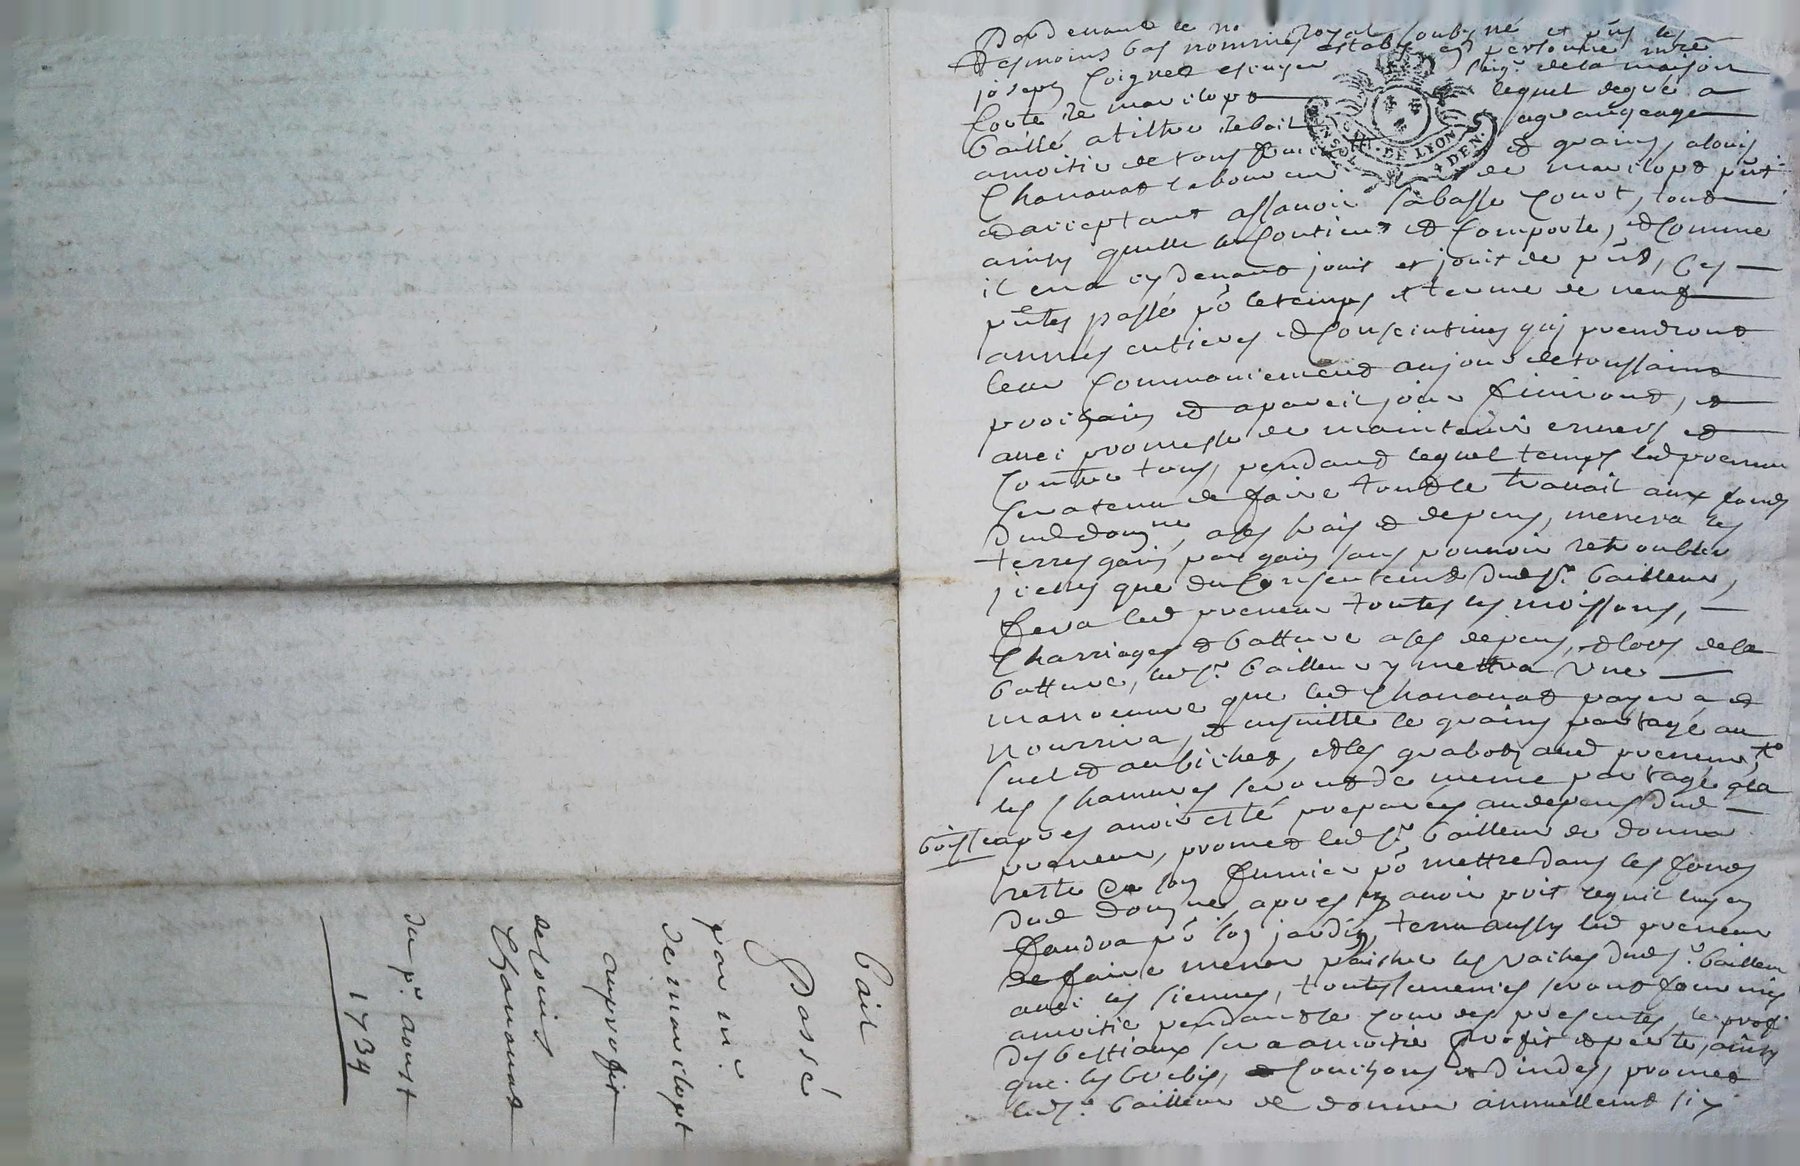 Pardevant le no^re royal soubsigné et p^nts les
tesmoins bas nommés estably en personne m^re
joseph Coignet escuyer seig^r. de la maison
forte de marclopt lequel de gré a
baillé a tiltre de bail a grangeage
a moitié de tous fruits et grains, a louis
Chavanat laboureur de marclopt p^nt
et acceptant assavoir sa basse Court, tout
ainsy quelle se Contient et Comporte, et Comme
il en a cy devant jouit et jouit de p^nt, Ces
p^ntes passé po^r le temps et terme de neuf
années entieres et Consecutives qui prendront
leur Commancement au jour de toussaint
prochain et a pareil jour finiront, et
avec promesse de maintenir envers et
Contre tous, pendant lequel temps led preneur
sera tenu de faire tout le travail aux fonds
dud dom^ne, a ses frais et depens, menera les
terres gain par gain sans pouvoir retroubler
jcelles que du Consentement dud s^r. bailleur,
fera led preneur toutes les moissons,
Charriages et batture a ses depens, et lors de la
batture, led s^r. bailleur y mettra une
manoeuvre que led Chavanat payera et
nourrira, et ensuitte le grains partagé au
suel et au bichet, et les grabots aud preneur,
les Chanvres seront de meme partagé a la
boisse apres avoir esté preparés au depens dud
preneur, promet led s^r. bailleur de donner
reste de son fumier po^r mettre dans les fonds
dud dom^ne apres en avoir prit ce quil luy en
faudra po^r son jardin, tenu aussy led preneur
de faire mener paistre les vaches dud s^r. bailleur
avec les siennes, toutes semences seront fournies
a moitié pendant le cour des presentes, le profit
des bestiaux sera a moitié profit et perte, ainsy
que les brebis, Couchons et dindes, promet
led s^r. bailleur de donner annuellement six
CTI. DE LYON
Bail
Passé
par m^r.
de marclopt
au proffit
de louis
Chavanat
du p^r. aoust
1734